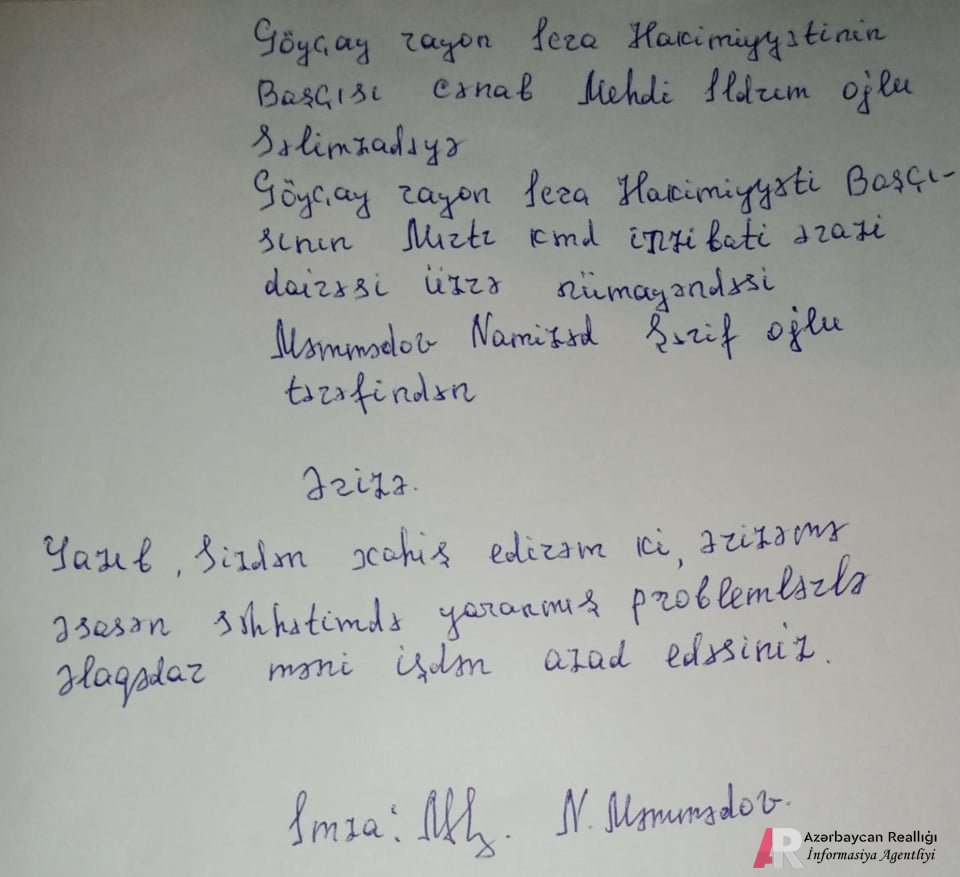 Göyçay rayon İcra Hakimiyyətinin
Başçısı cənab Mehdi İldrım oğlu
Səlimzadəyə
Göyçay rayon İcra Hakimiyyəti Başçı-
sının Mırtı kmd inzibati ərazi
dairəsi üzrə nümayəndəsi
Məmmədov Namizəd Şərif oğlu
tərəfindən
Ərizə.
Yazıb, Sizdən xahiş edirəm ki, ərizəmə
əsasən səhhətimdə yaranmış problemlərlə
əlaqədar məni işdən azad edəsiniz.
İmza: N. Məmmədov.
Azərbaycan Reallığı
İnformasiya Agentliyi